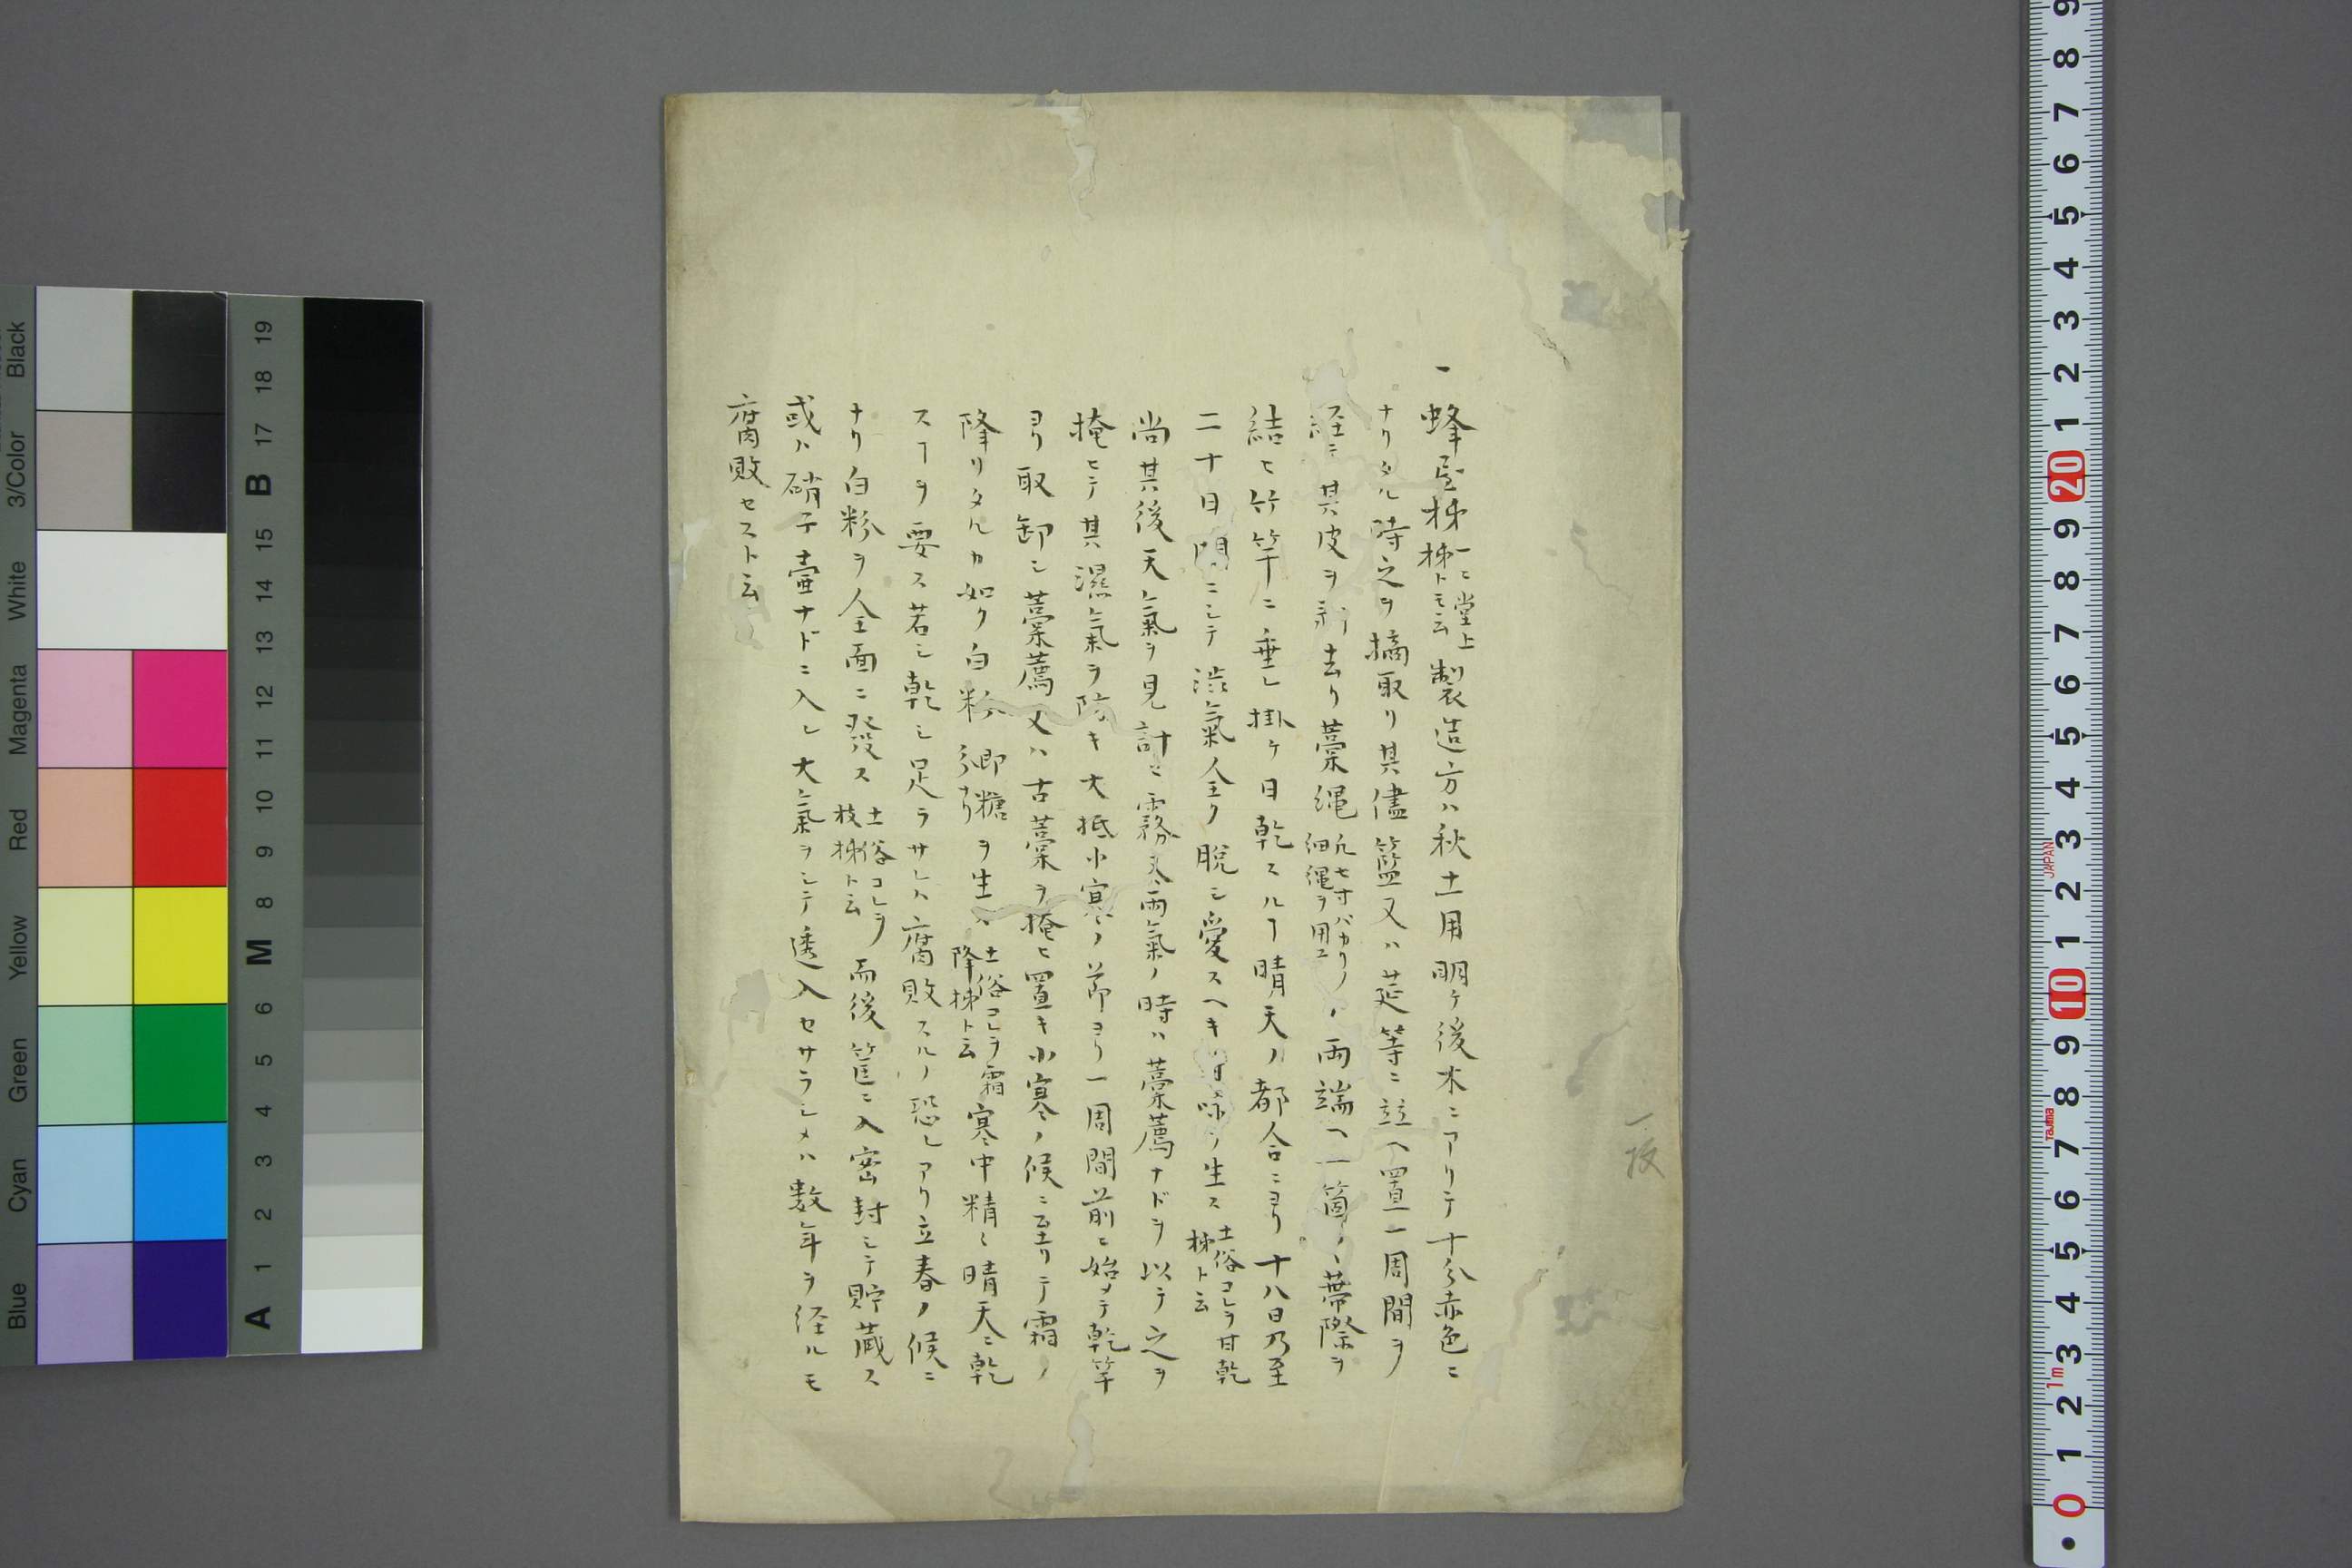 一蜂屋柹一ニ堂上柹トモ云製造方ハ秋土用明ケ後木ニアリテ十分赤色ニ
ナリタル時之ヲ摘取リ其儘籃又ハ莚等ニ竝ヘ置一周間ヲ
経ニ其皮ヲ剥去リ藁縄凡七寸バカリノ細縄ヲ用ユノ両端ヘ一箇ノヽ蔕際ヲ
結ヒ竹竿ニ垂レ掛ケ日乾スルヿ晴天ノ都合ニヨリ十八日乃至
二十日間ニシテ渋氣全ク脱シ愛スヘキ甘味ヲ生ス土俗コレヲ甘乾柹ト云
尚其後天氣ヲ見計ヒ霧又雨氣ノ時ハ藁薦ナドヲ以テ之ヲ
掩ヒテ其濕氣ヲ防キ大抵小寒ノ節ヨリ一周間前ニ始メテ乾竿
ヨリ取卸シ藁薦又ハ古藁ヲ掩ヒ置キ小寒ノ候ニ至リテ霜ノ
降リタルカ如ク白粉即糖分ナリヲ生ス土俗コレヲ霜降柹ト云寒中精々晴天ニ乾
スヿヲ要ス若シ乾シ足ラサレハ腐敗スルノ恐レアリ立春ノ候ニ
ナリ白粉ヲ全面ニ發ス土俗コレヲ枝柹ト云而後筐ニ入密封シテ貯蔵ス
或ハ硝子壷ナドニ入レ大氣ヲシテ透入セサラシメハ数年ヲ経ルモ
腐敗セスト云
一枚
Black
3/Color
White
Magenta
Red
Yellow
Green
Cyan
Blue
A 1 2 3 4 5 6 M 8 9 10 11 12 13 14 15 B 17 18 19
0 1 2 3 4 5 6 7 8 9 10 1 2 3 4 5 6 7 8 9 20 1 2 3 4 5 6 7 8 9
1m
TAJIMA
JAPAN